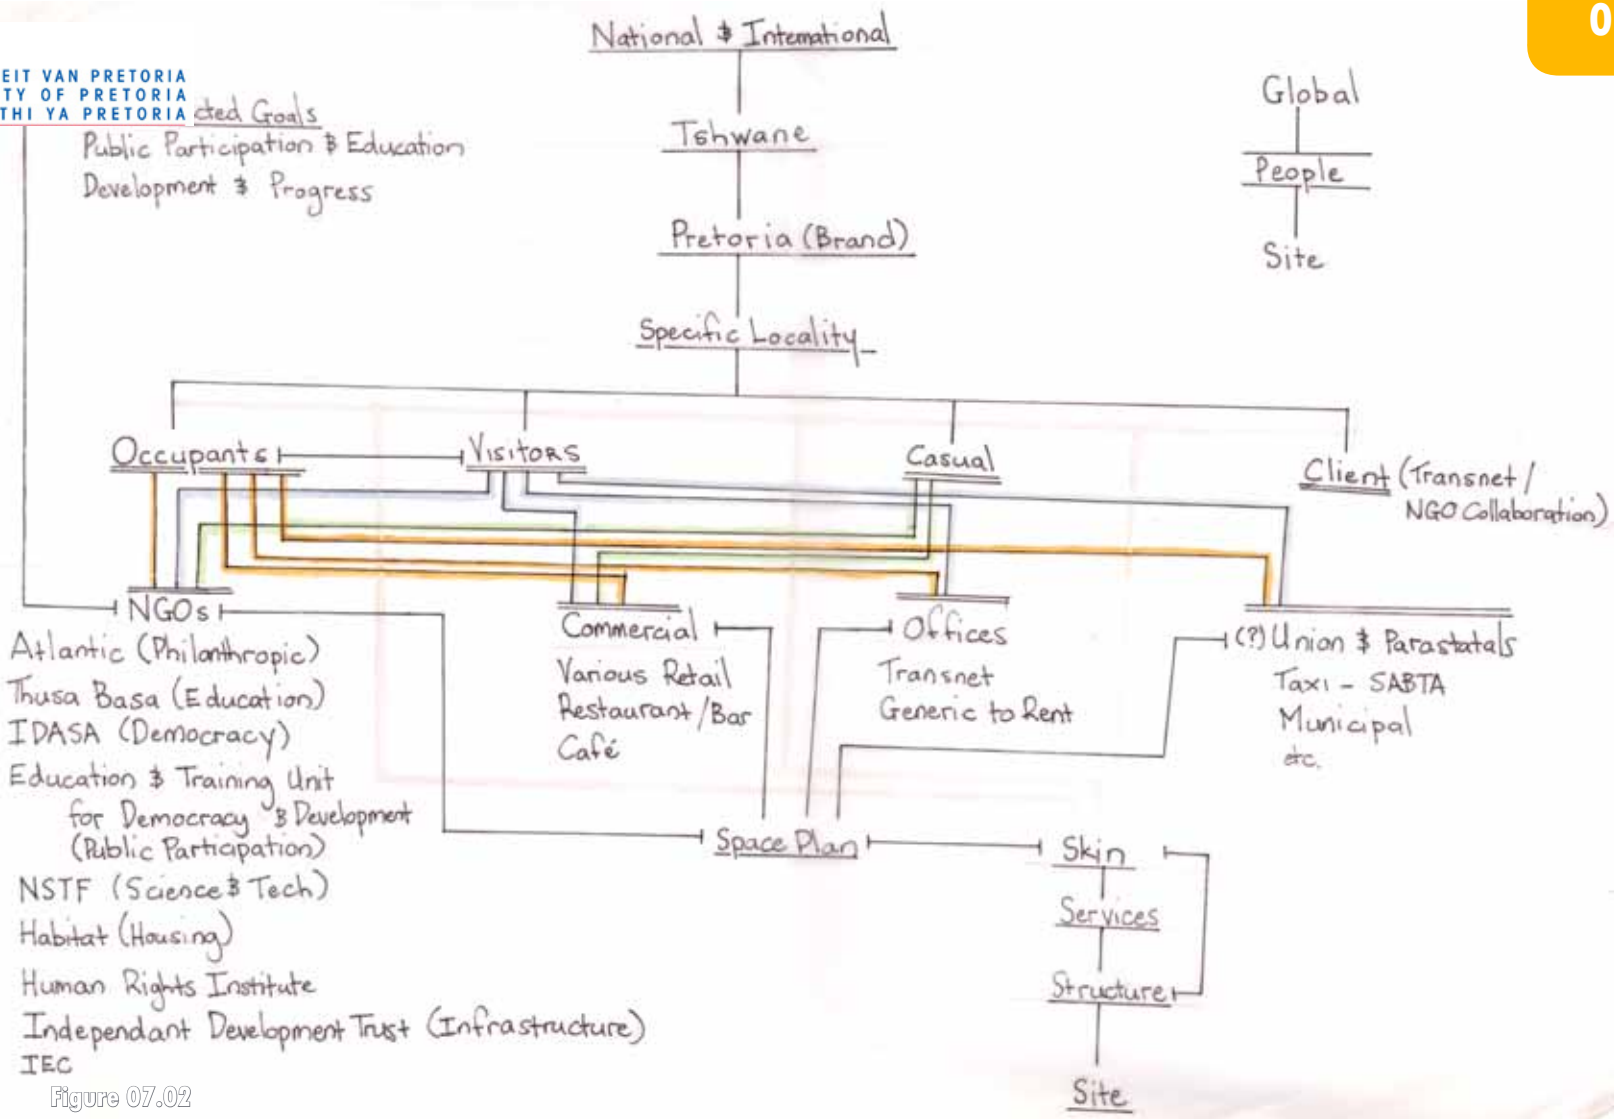 National & International
0
EIT VAN PRETORIA
TY OF PRETORIA
THI YA PRETORIA
cted Goals
Public Participation & Education
Development & Progress
Global
People
Site
Tshwane
Pretoria (Brand)
Specific Locality
Occupants
Visitors
Casual
Client (Transnet /
NGO Collaboration)
NGOs
Atlantic (Philanthropic)
Thusa Basa (Education)
IDASA (Democracy)
Education & Training Unit
for Democracy & Development
(Public Participation)
NSTF (Science & Tech)
Habitat (Housing)
Human Rights Institute
Independant Development Trust (Infrastructure)
IEC
Commercial
Various Retail
Restaurant / Bar
Café
Offices
Transnet
Generic to Rent
(?) Union & Parastatals
Taxi - SABTA
Municipal
etc.
Space Plan
Skin
Services
Structure
Site
Figure 07.02